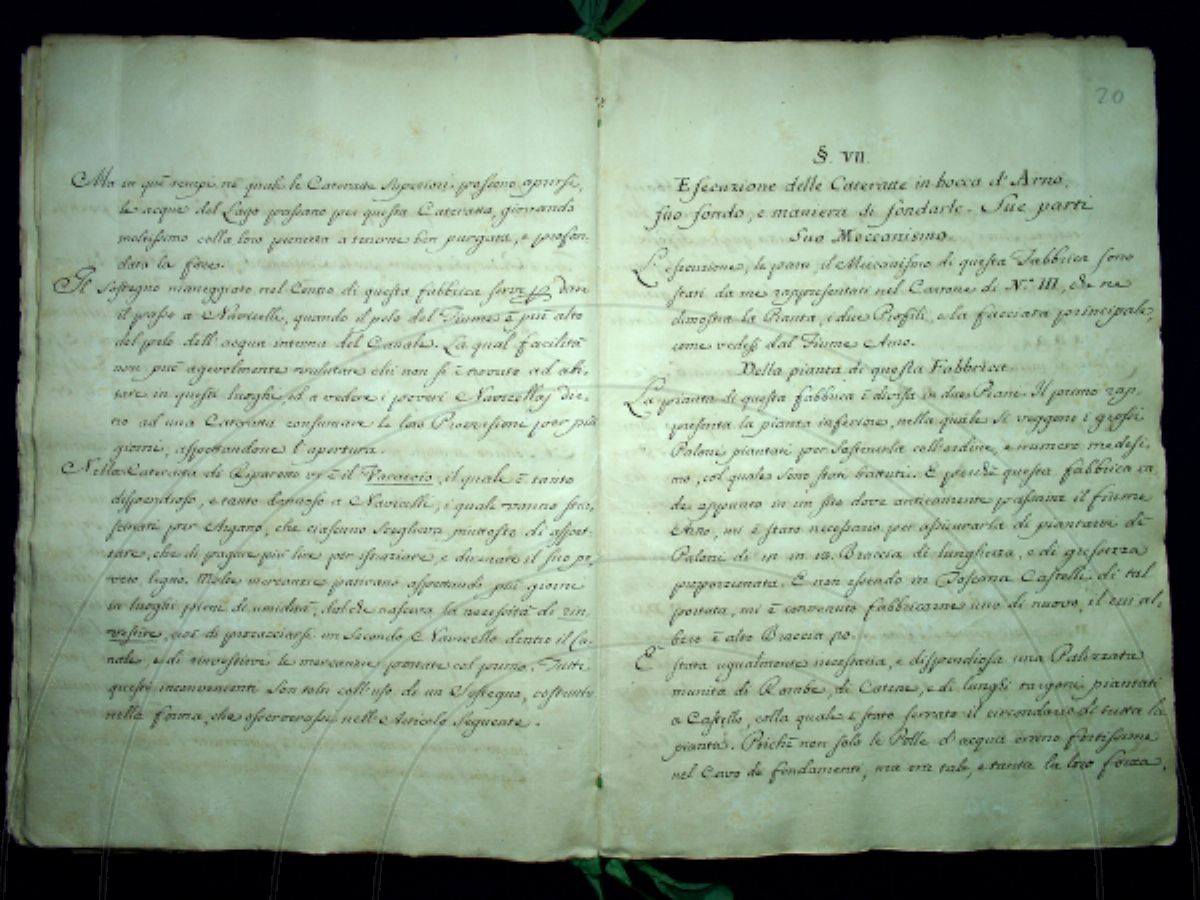 Ma in que' tempi ne' quali le Cateratte Superiori possono aprirsi,
le acque del Lago passano per questa Cateratta, giovando
moltissimo colla loro pienezza a tenerne ben purgata, e profon-
data la foce.
Il Sostegno maneggiato nel Centro di questa fabbrica serve p dare
il passo a' Navicelli, quando il pelo del Fiume è più alto
del pelo dell'acqua interna del Canale. La qual facilità
non può agevolmente valutare chi non si è trovato ad abi-
tare in questi luoghi, ed a vedere i poveri Navicellaj die-
tro ad una Cateratta consumare le loro Provvisioni per più
giorni, aspettandone l'apertura.
Nella Cateratta di Riparotto vi è il Varatoio, il quale è tanto
dispendioso, e tanto dannoso a' Navicelli, i quali vanno stra-
scinati per Argano, che ciascuno sceglieva piuttosto di aspet-
tare, che di pagare più lire per istraziare, e divenare il suo po-
vero legno. Molte mercanzie pativano aspettando più giorni
in luoghi pieni di umidità, dal che nasceva la necessità di rin-
vestire, cioè di procacciarsi un secondo Navicello dentro il Ca-
nale, e di rinvestirvi le mercanzie portate col primo. Tutti
questi inconvenienti son tolti coll'uso di un Sostegno, costruito
nella forma, che osserverassi nell'Articolo Seguente.
20
§. VII.
Esecuzione delle Cateratte in bocca d'Arno,
suo fondo, e maniera di fondarle. Sue parti
Suo Meccanismo.
L'esecuzione, le parti, il Meccanismo di questa Fabbrica sono
stati da me rappresentati nel Cartone di N.º III, che ne
dimostra la Pianta, i due Profili, e la facciata principale,
come vedesi dal Fiume Arno.
Della pianta di questa Fabbrica.
La pianta di questa fabbrica è divisa in due Piani. Il primo rap-
presenta la pianta inferiore, nella quale si veggono i grossi
Paloni piantati per Sostenerla coll'ordine, e numero medesi-
mo, col quale sono stati battuti. E perchè questa fabbrica ca-
de appunto in un sito dove anticamente passava il fiume
Arno, mi è stato necessario per assicurarla di piantarvi de'
Paloni di in in Braccia di lunghezza, e di grossezza
proporzionata. E non essendo in Toscana Castelli di tal
portata, mi è convenuto fabbricarne uno di nuovo, il cui al-
bero è alto Braccia
E' stata ugualmente necessaria, e dispendiosa una Palizzata
munita di Rombe, di Catene, e di lunghi targoni piantati
a Castello, colla quale è stato serrato il circondario di tutta la
pianta. Poichè non solo le Polle d'acqua erano fortissime
nel Cavo de' fondamenti, ma era tale, e tanta la loro forza,